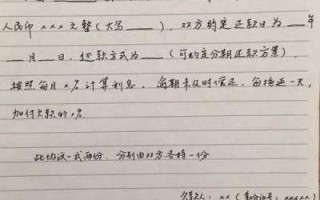 人民币 xxx 元整（大写____），双方约定还款日为____年
__月__日，还款方式为____（可约定分期还款方案），
按照每月x%计算利息，逾期未及时偿还，每拖延一天，
加付欠款的x%.
此协议一式两份，分别由双方各持一份
欠款人：xx（身份证号：xxxxx）